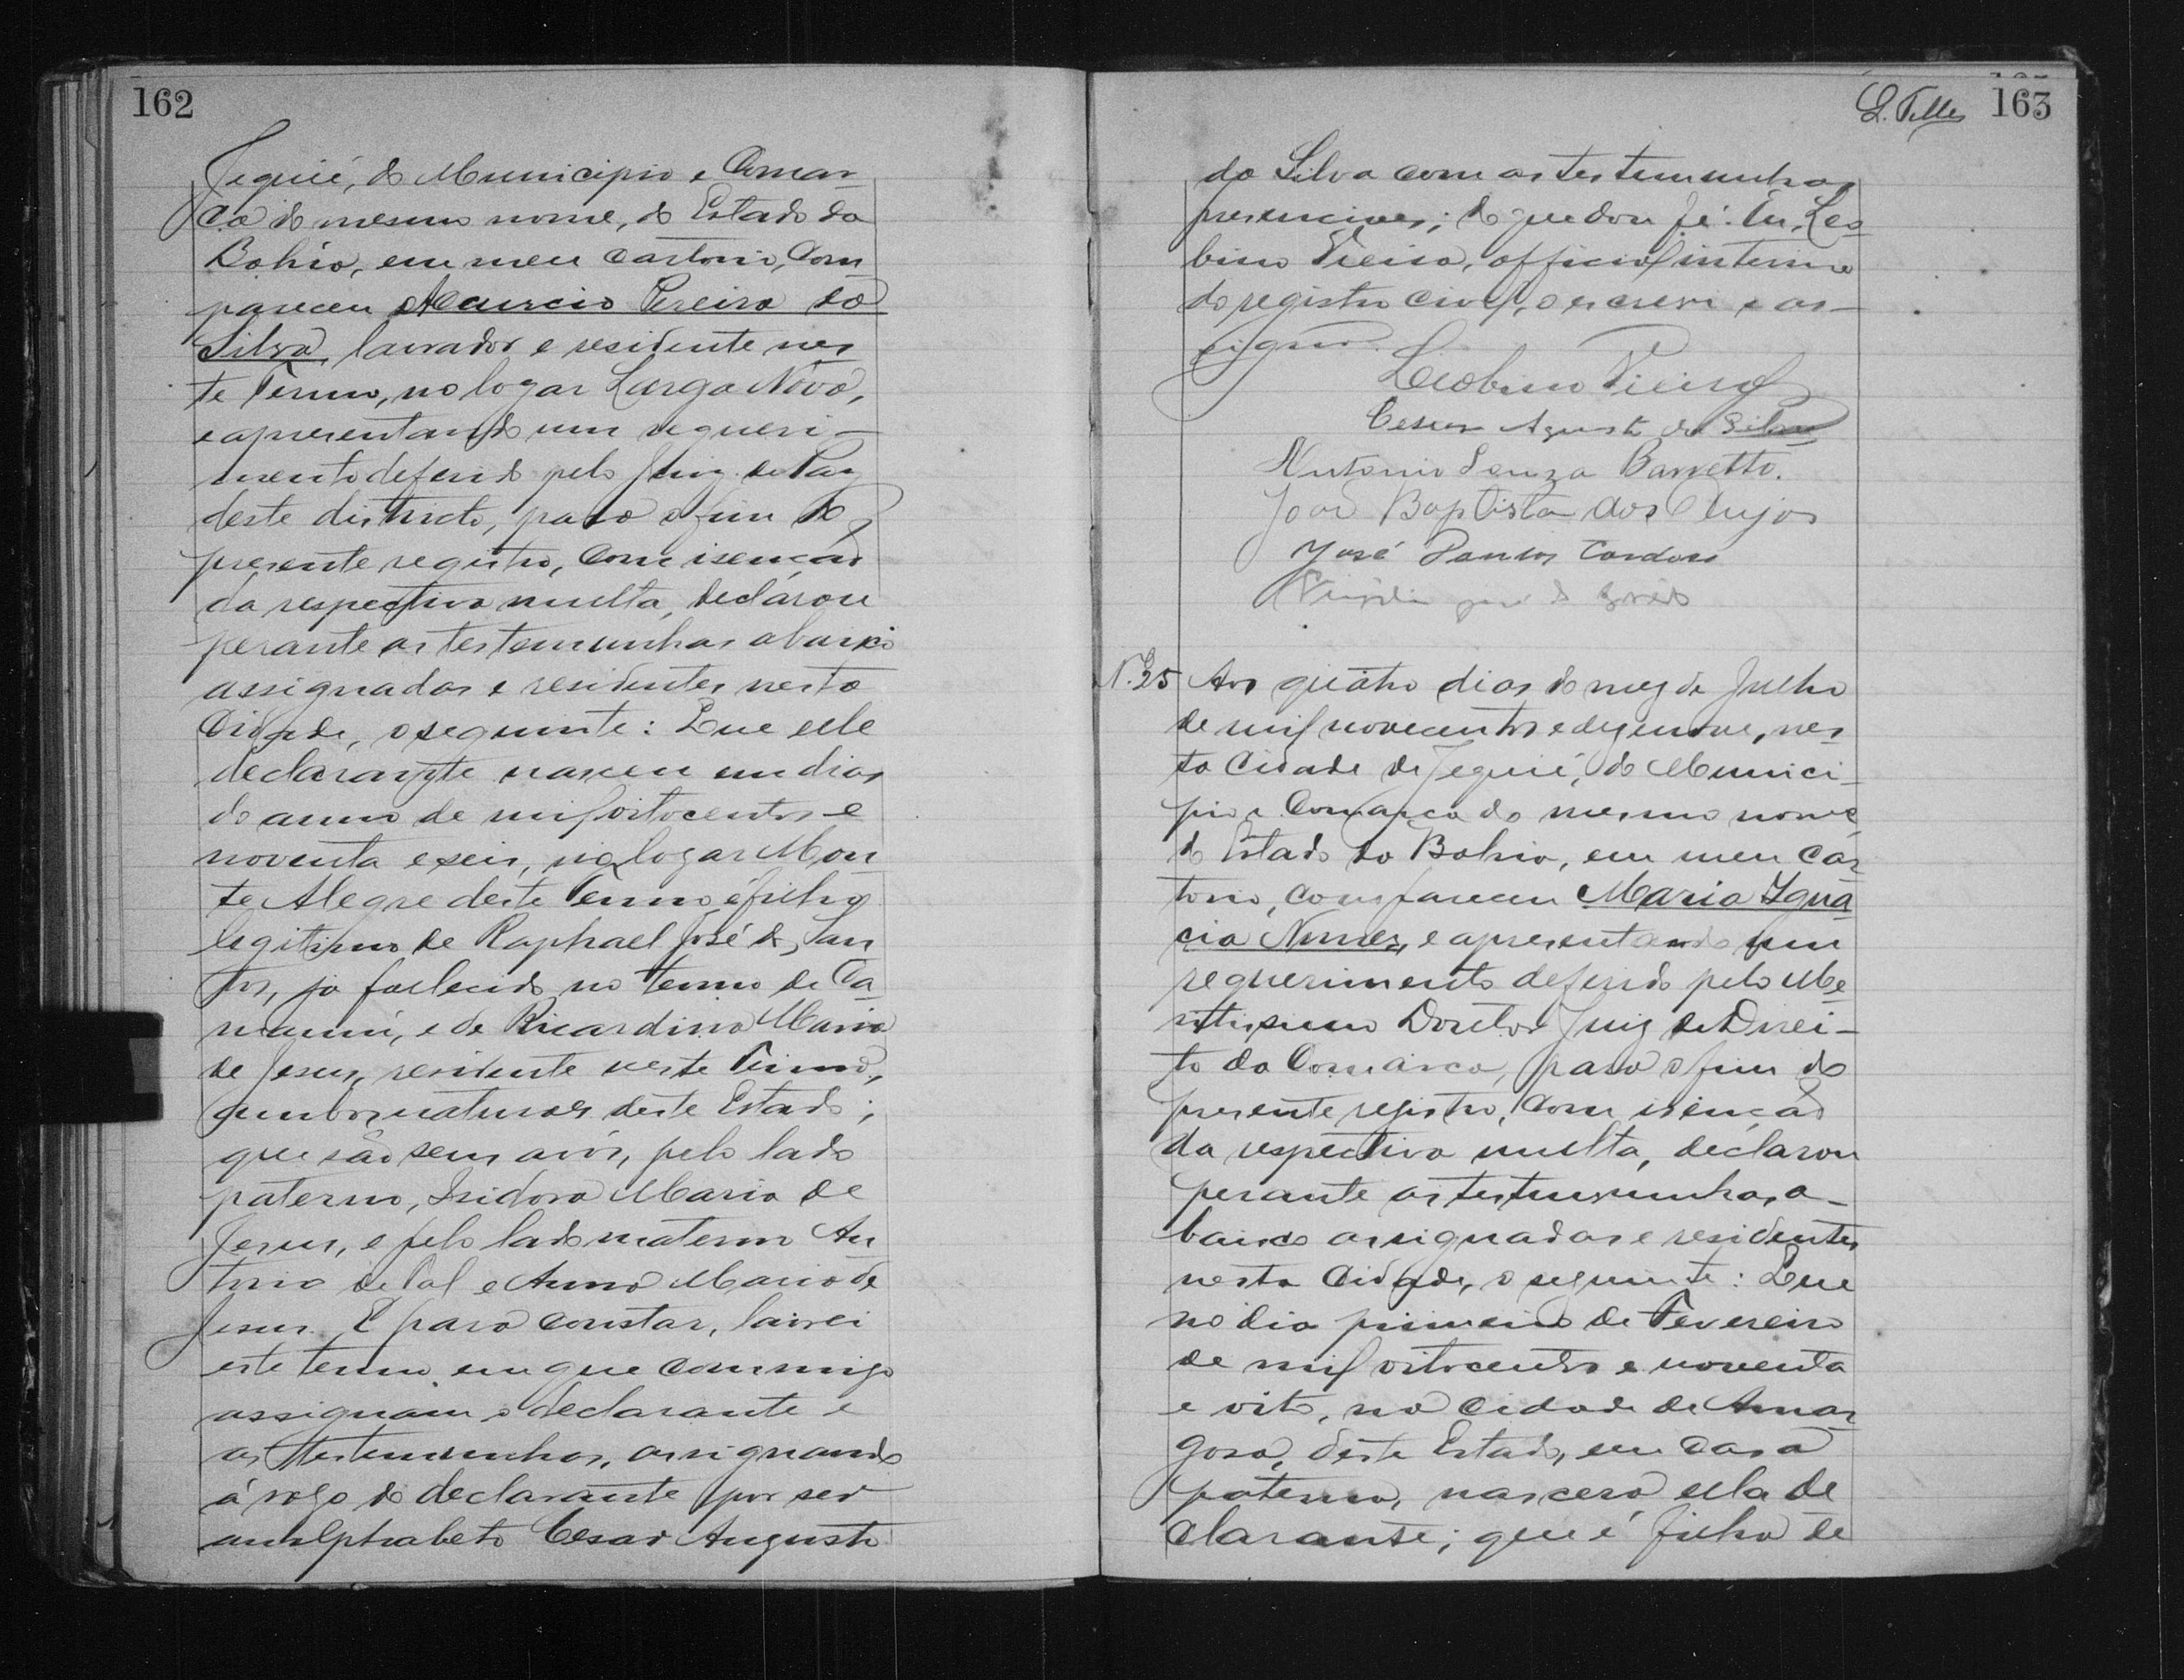 162
Jequié, do Municipio e Comar
ca do mesmo nome, do Estado da
Bahia, em meu cartorio, com
pareceu Mauricio Pereira da
Silva, lavrador e residente nes
te Termo, no logar Larga Nova,
e apresentando um requeri-
mento deferido pelo Juiz de Paz
deste districto, para o fim do
presente registro, com isenção
da respectiva multa, declarou
perante as testemunhas abaixo
assignadas e residentes nesta
Cidade, o seguinte: Que elle
declarante nasceu em dias
do anno de mil oitocentos e
noventa e seis, no logar Mon
te Alegre deste Termo é filho
legitimo de Raphael José dos San
tos, já fallecido no termo de Ca
mamú, e de Ricardina Maria
de Jesus, residente neste Termo,
ambos naturaes deste Estado;
que são seus avós, pelo lado
paterno, Isidora Maria de
Jesus, e pelo lado materno An
tonio de Tal e Anna Maria de
Jesus. E para constar, lavrei
este termo em que commigo
assignam o declarante e
as testemunhas, assignando
á rogo do declarante por ser
analphabeto Cesar Augusto
L. Telles 163
da Silva com as testemunhas
presenciaes; do que dou fé. Eu, Leo
bino Vieira, official interino
do registro civil, o escrevi e as-
signo.
Leobino Vieira
Cesar Agusto da Silva
Antonio Souza Barretto.
João Baptista dos Anjos
José Santos Cardoso
N. 35 Aos quatro dias do mez de Julho
de mil novecentos e dezenove, nes
ta Cidade de Jequié, do Munici-
pio e Comarca do mesmo nome,
do Estado da Bahia, em meu car
torio, compareceu Maria Igna
cia Nunes, e apresentando um
requerimento deferido pelo Me
ritissimo Doutor Juiz de Direi-
to da Comarca, para o fim do
presente registro, com isenção
da respectiva multa, declarou
perante as testemunhas a-
baixo assignadas e residentes
nesta Cidade, o seguinte: Que
no dia primeiro de Fevereiro
de mil oitocentos e noventa
e oito, na Cidade de Amar
gosa, deste Estado, em casa
paterna, nascera ella de
clarante; que é filha de